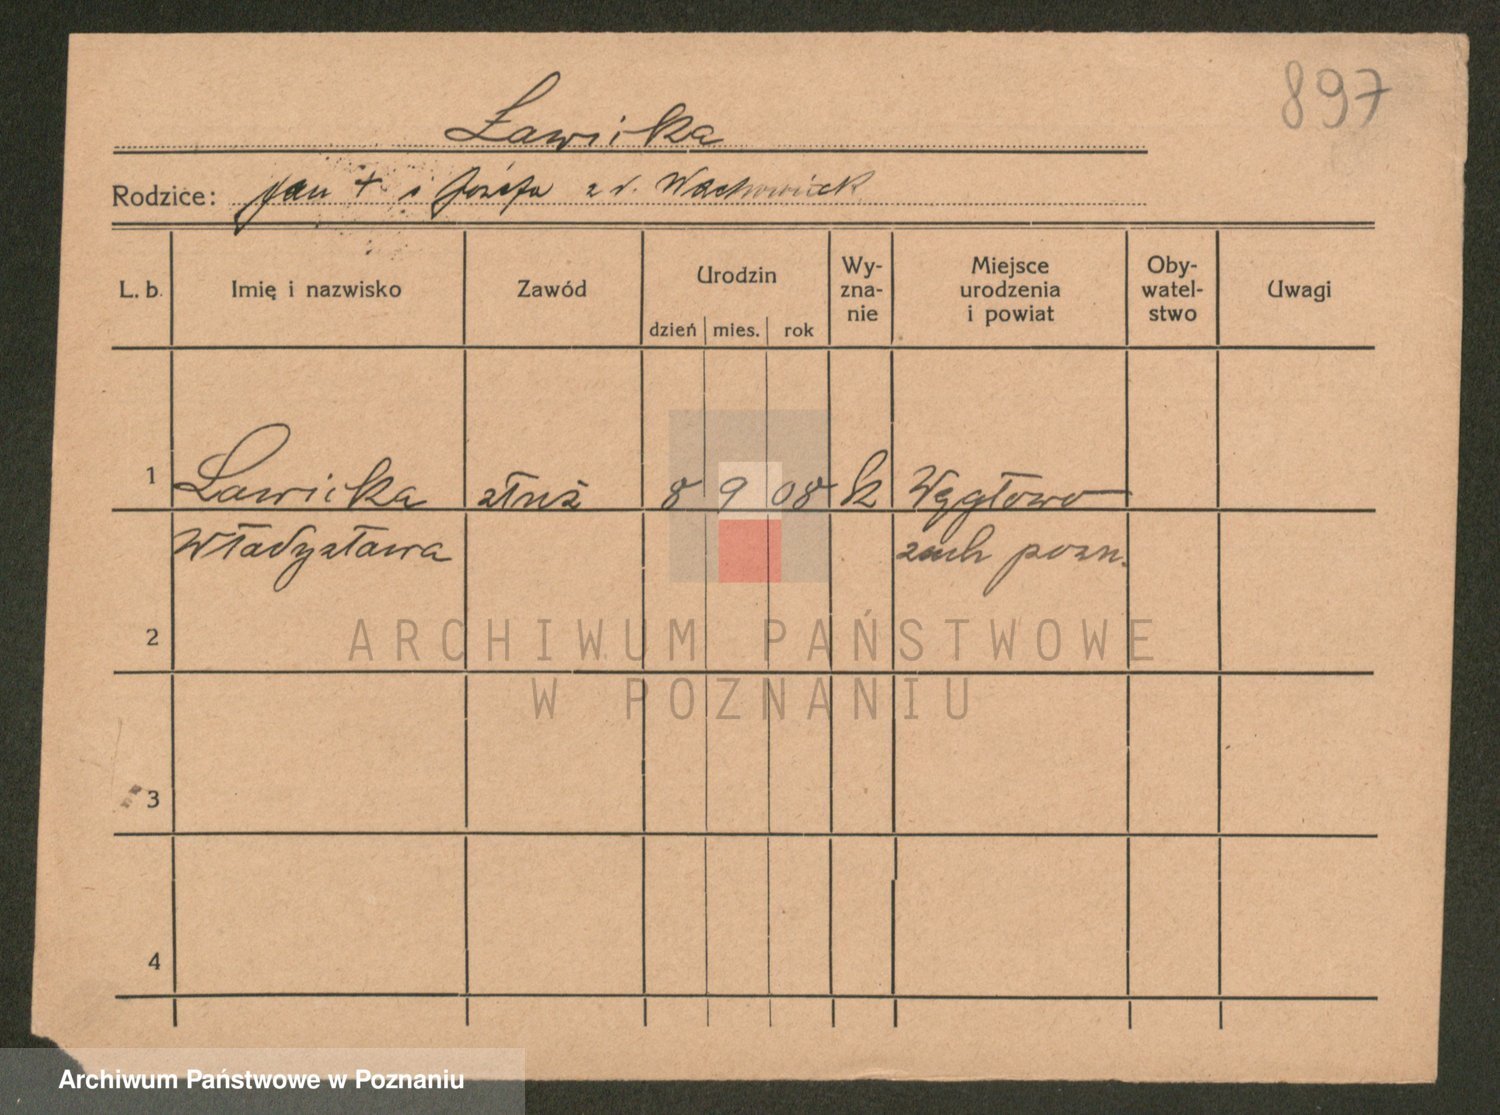 897
Ławicka
Rodzice: Jan + i Józefa z d. Wachowiak
L. b. Imię i nazwisko Zawód Urodzin Wy-zna-nie Miejsce urodzenia i powiat Oby-watel-stwo Uwagi
dzień mies. rok
1 Ławicka służ 8 9 08 k Węgłowo
Władysława pozn.
2
ARCHIWUM PAŃSTWOWE
W POZNANIU
3
4
Archiwum Państwowe w Poznaniu